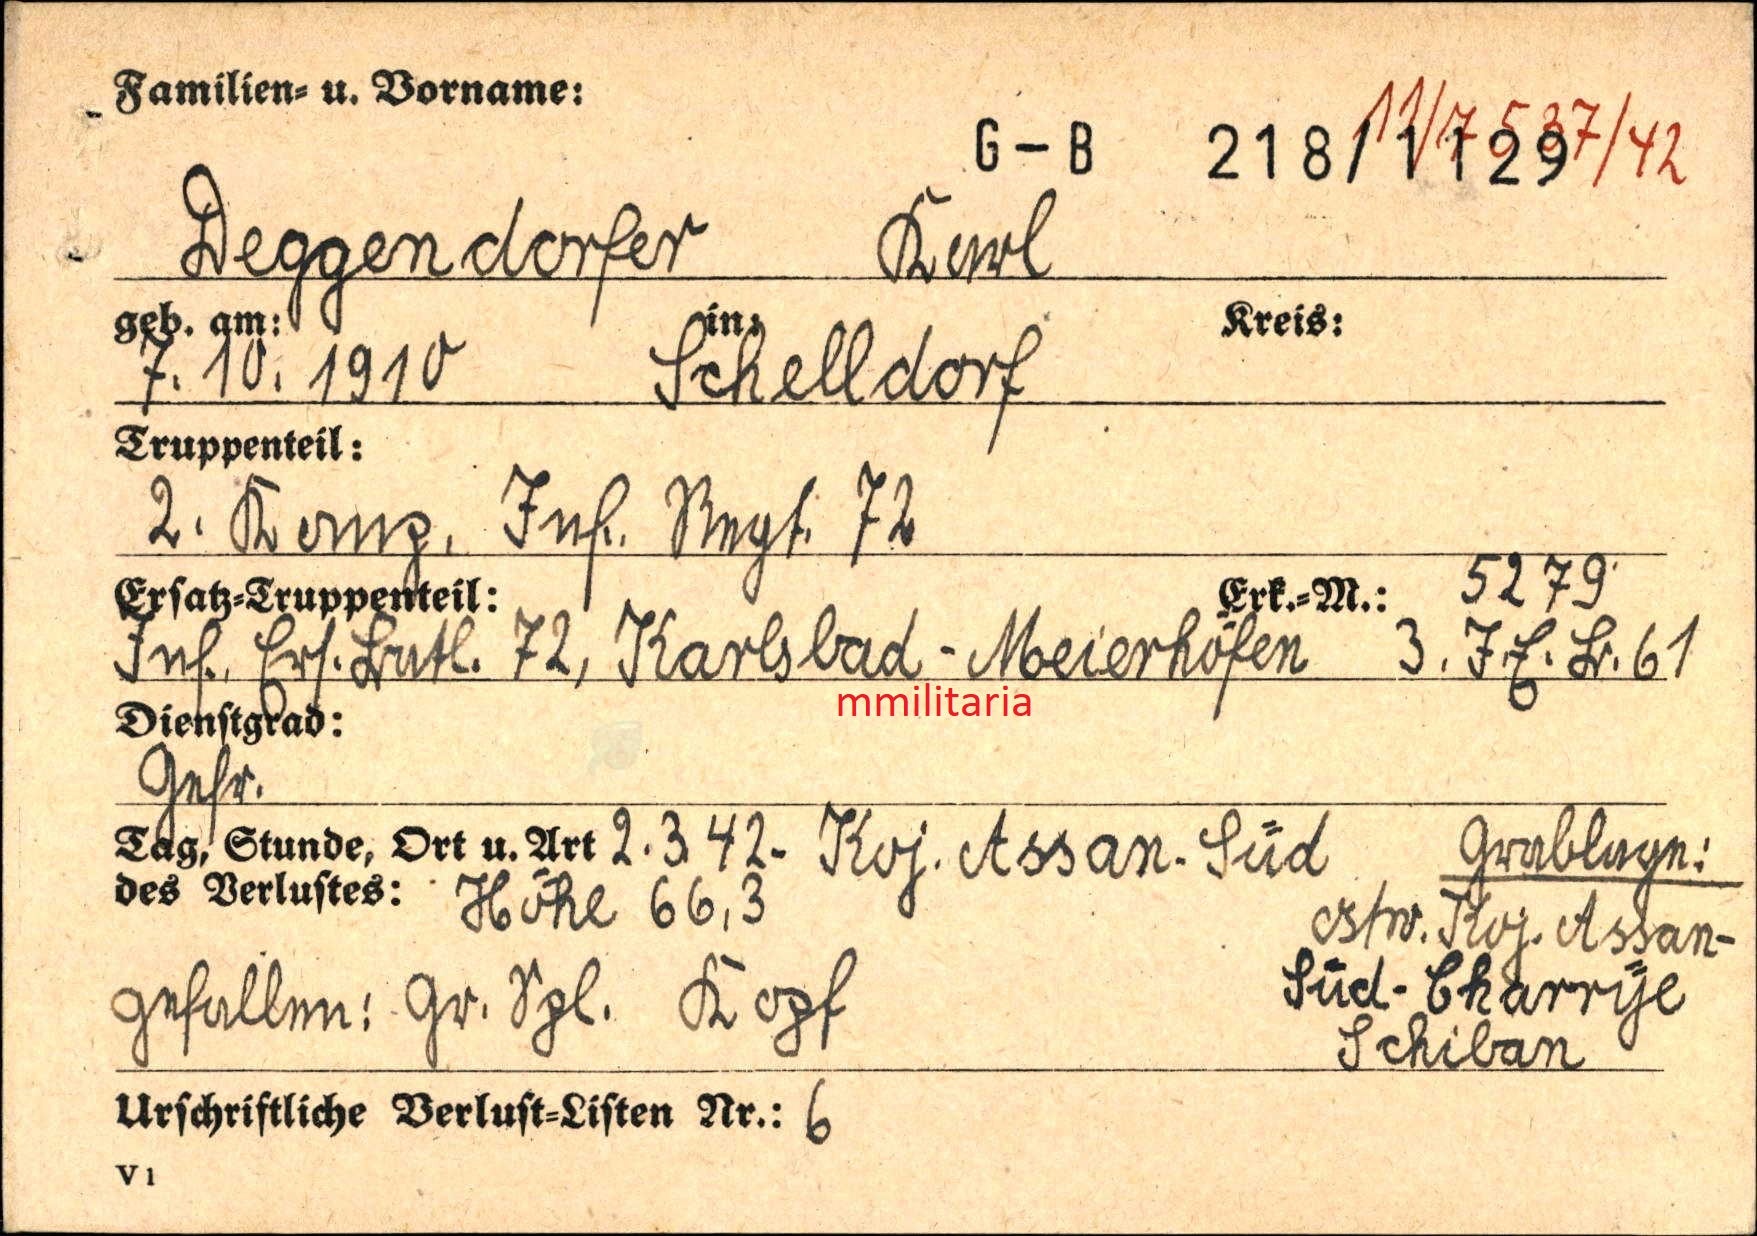 Familien- u. Vorname:
G-B 218/1129
11/7537/42
Deggendorfer Karl
geb. am: in: Kreis:
7. 10. 1910 Schelldorf
Truppenteil:
2. Komp. Inf. Regt. 72
Ersatz-Truppenteil: Erk.-M.: 5279
Inf. Ers. Batl. 72, Karlsbad - Meierhöfen 3. I. E. B. 61
mmilitaria
Dienstgrad:
Gefr.
Tag, Stunde, Ort u. Art 2.3.42- Koj. Assan-Süd
des Verlustes: Höhe 66,3
gefallen: Gr. Spl. Kopf
Grablage:
ostw. Koj. Assan-
Süd-Charrye
Schiban
Urschriftliche Verlust-Listen Nr.: 6
V 1